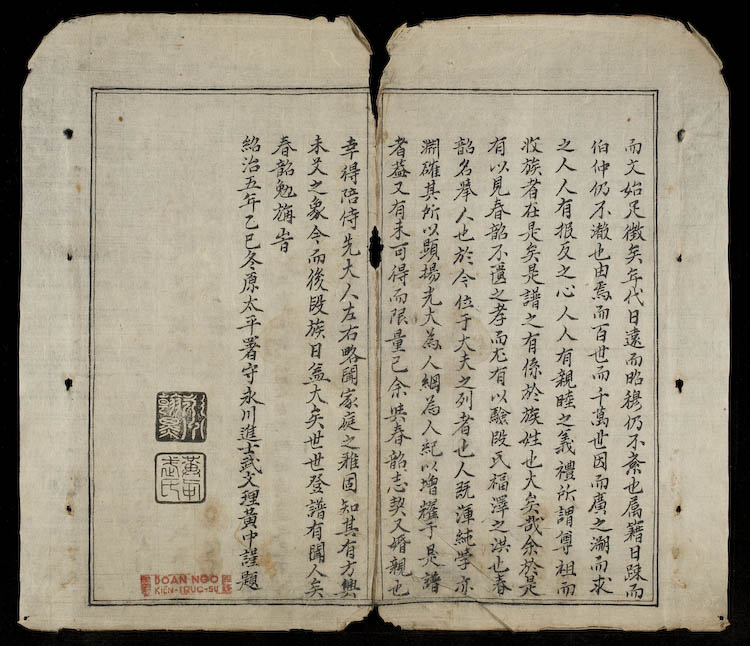 而文始足徵矣年代日遠而昭穆仍不紊也屬籍日疎而
伯仲仍不渝也由焉而百世而千萬世因而廣之溯而求
之人人有報反之心人人有親睦之義禮所謂尊祖而
收族者在是矣是譜之有係於族姓也大矣哉余於是
有以見春韶不匱之孝而尤有以驗段氏福澤之洪也春
韶名舉人也於今位于大夫之列者也人既渾純學亦
淵確其所以顯揚光大為人綱為人紀以增耀于是譜
者益又有未可得而限量已余與春韶志契又婚親也
幸得陪侍先大人左右略聞家庭之雅固知其有方興
未艾之象今而後段族日益大矣世世登譜有聞人矣
春韶勉旃旹
紹治五年乙巳冬原太平署守永川進士武文理黃中謹題
黃中
武氏
DOAN NGO
KIEN-TRUC-SU